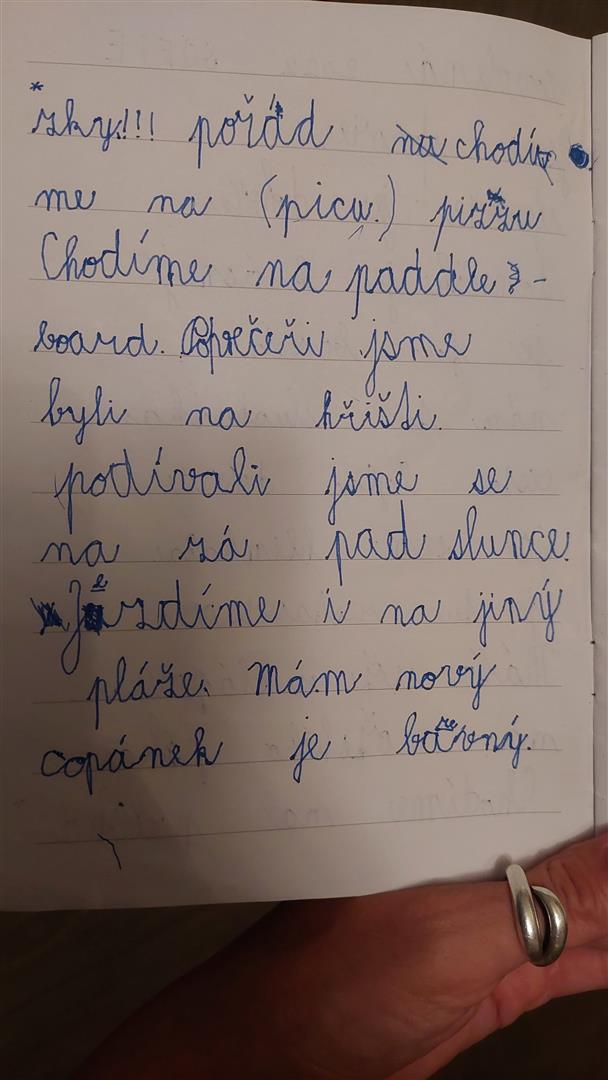 * zky!!! pořád na chodí
me na (picu.) pizzu
Chodíme na paddle-
board. Popečeři jsme
byli na hřišti.
podívali jsme se
na zá pad slunce.
Jezdíme i na jiný
pláže. Mám nový
copánek je barevný.